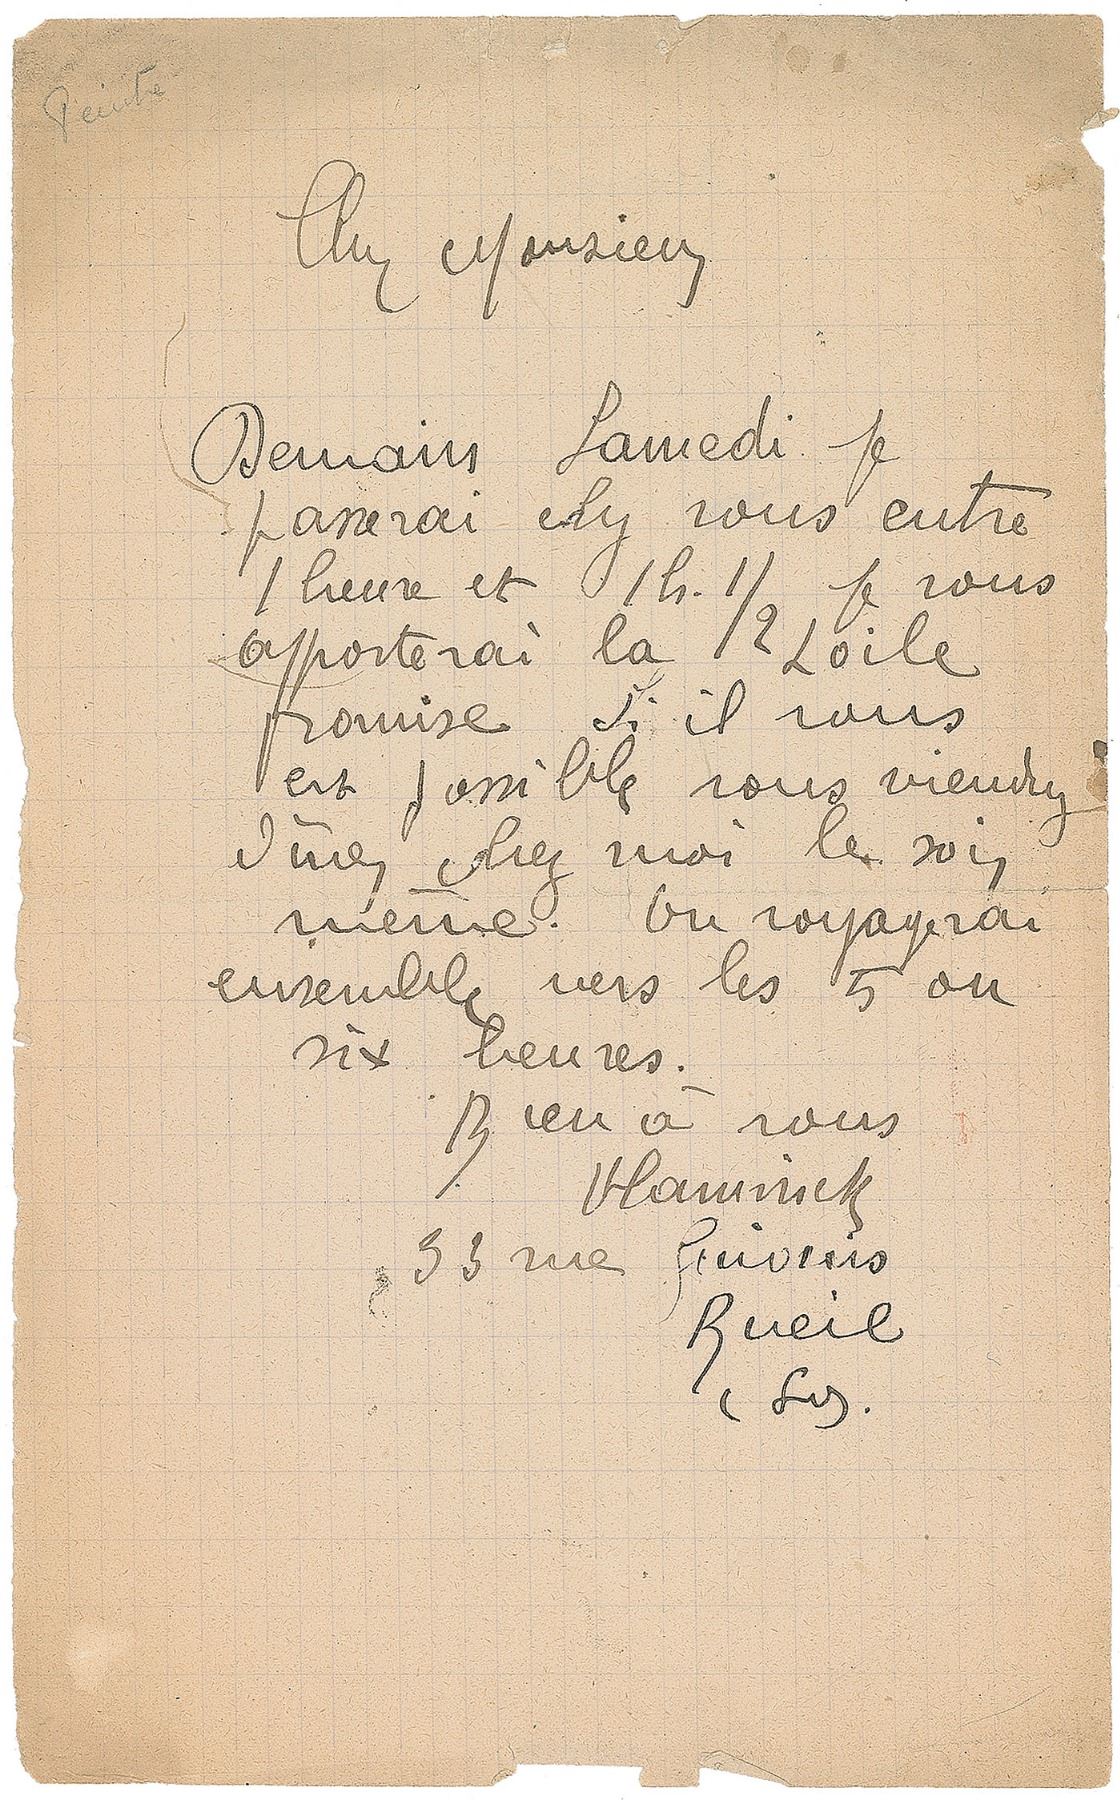 Peintre
Cher Monsieur
Demain Samedi je
passerai chez vous entre
1 heure et 1 h. 1/2 je vous
apporterai la toile
promise Si il vous
est possible vous viendrez
dîner chez moi le soir
même. On voyagerai
ensemble vers les 5 ou
six heures.
Bien à vous
Vlaminck
33 rue
Rueil